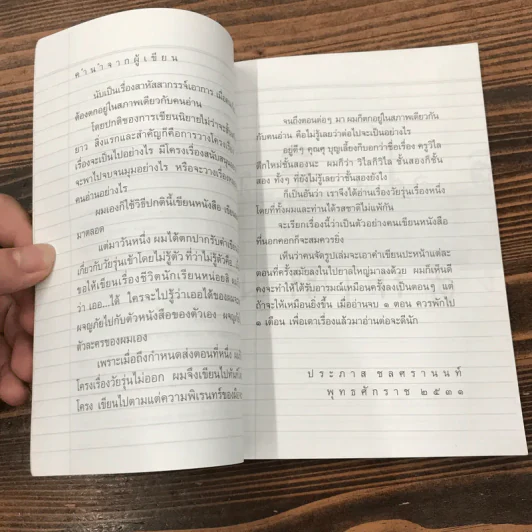 คำนำจากผู้เขียน
นับเป็นเรื่องสาหัสสากรรจ์เอาการ เมื่อ
ต้องตกอยู่ในสภาพเดียวกับคนอ่าน
โดยปกติของการเขียนนิยายไม่ว่าจะ
ยาว สิ่งแรกและสำคัญก็คือการวางโครง
เรื่องจะเป็นไปอย่างไร มีโครงเรื่องสนับสนุน
จะพาไปจบจนมุมอย่างไร หรือจะวาง
คนอ่านอย่างไร
ผมเองก็ใช้วิธีปกตินี้เขียนหนังสือ
มาตลอด
แต่มาวันหนึ่ง ผมได้ตกปากรับคำ
เกี่ยวกับวัยรุ่นเข้าโดยไม่รู้ตัว ที่ว่าไม่รู้ตัวคือ
ขอให้เขียนเรื่องชีวิตนักเรียนหน่อยสิ
ว่า เออ...ได้ ใครจะไปรู้ว่าเออได้ของผม
ผจญภัยไปกับตัวหนังสือของตัวเอง ผจญภัย
ตัวละครของผมเอง
เพราะเมื่อถึงกำหนดส่งตอนที่หนึ่ง
โครงเรื่องวัยรุ่นไม่ออก ผมจึงเขียนไป
โครง เขียนไปตามแต่ความพิเรนทร์ของ
จนถึงตอนต่อๆ มา ผมก็ตกอยู่ในสภาพเดียวกัน
กับคนอ่าน คือไม่รู้เลยว่าต่อไปจะเป็นอย่างไร
อยู่ดีๆ คุณศุ บุญเลี้ยงก็บอกว่าชื่อเรื่อง ครูวิไล
ตึกใหม่ชั้นสองนะ ผมก็ว่า วิไลก็วิไล ชั้นสองก็ชั้น
สอง ทั้งๆ ที่ยังไม่รู้เลยว่าชั้นสองยังไง
ก็เป็นอันว่า เราจึงได้อ่านเรื่องวัยรุ่นเรื่องหนึ่ง
โดยที่ทั้งผมและท่านได้รสชาติไม่แพ้กัน
จะเรียกเรื่องนี้ว่าเป็นตัวอย่างคนเขียนหนังสือ
ที่นอกคอกก็จะสมควรยิ่ง
เห็นว่าคนจัดรูปเล่มจะเอาคำเขียนปะหน้าแต่ละ
ตอนที่ครั้งสมัยลงในไปยาลใหญ่มาลงด้วย ผมก็เห็นดี
คงจะทำให้ได้รับอารมณ์เหมือนครั้งลงเป็นตอนๆ แต่
ถ้าจะให้เหมือนยิ่งขึ้น เมื่ออ่านจบ ๑ ตอน ควรพักไป
๑ เดือน เพื่อเดาเรื่องแล้วมาอ่านต่อจะดีนัก
ประภาส ชลศรานนท์
พุทธศักราช ๒๕๓๑